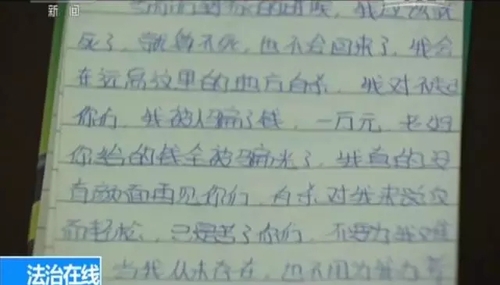 新闻
的时候，我应该
死了，就算不死，也不会回来了，我会
在远离这里的地方自杀，我对不起
你们，我被人骗了钱，一万元，老妈
你给的钱全被骗光了，我真的没
有颜面再见你们，自杀对我来说反
而轻松，只是苦了你们，不要为我难
当我从未存在，也不用为
法治在线